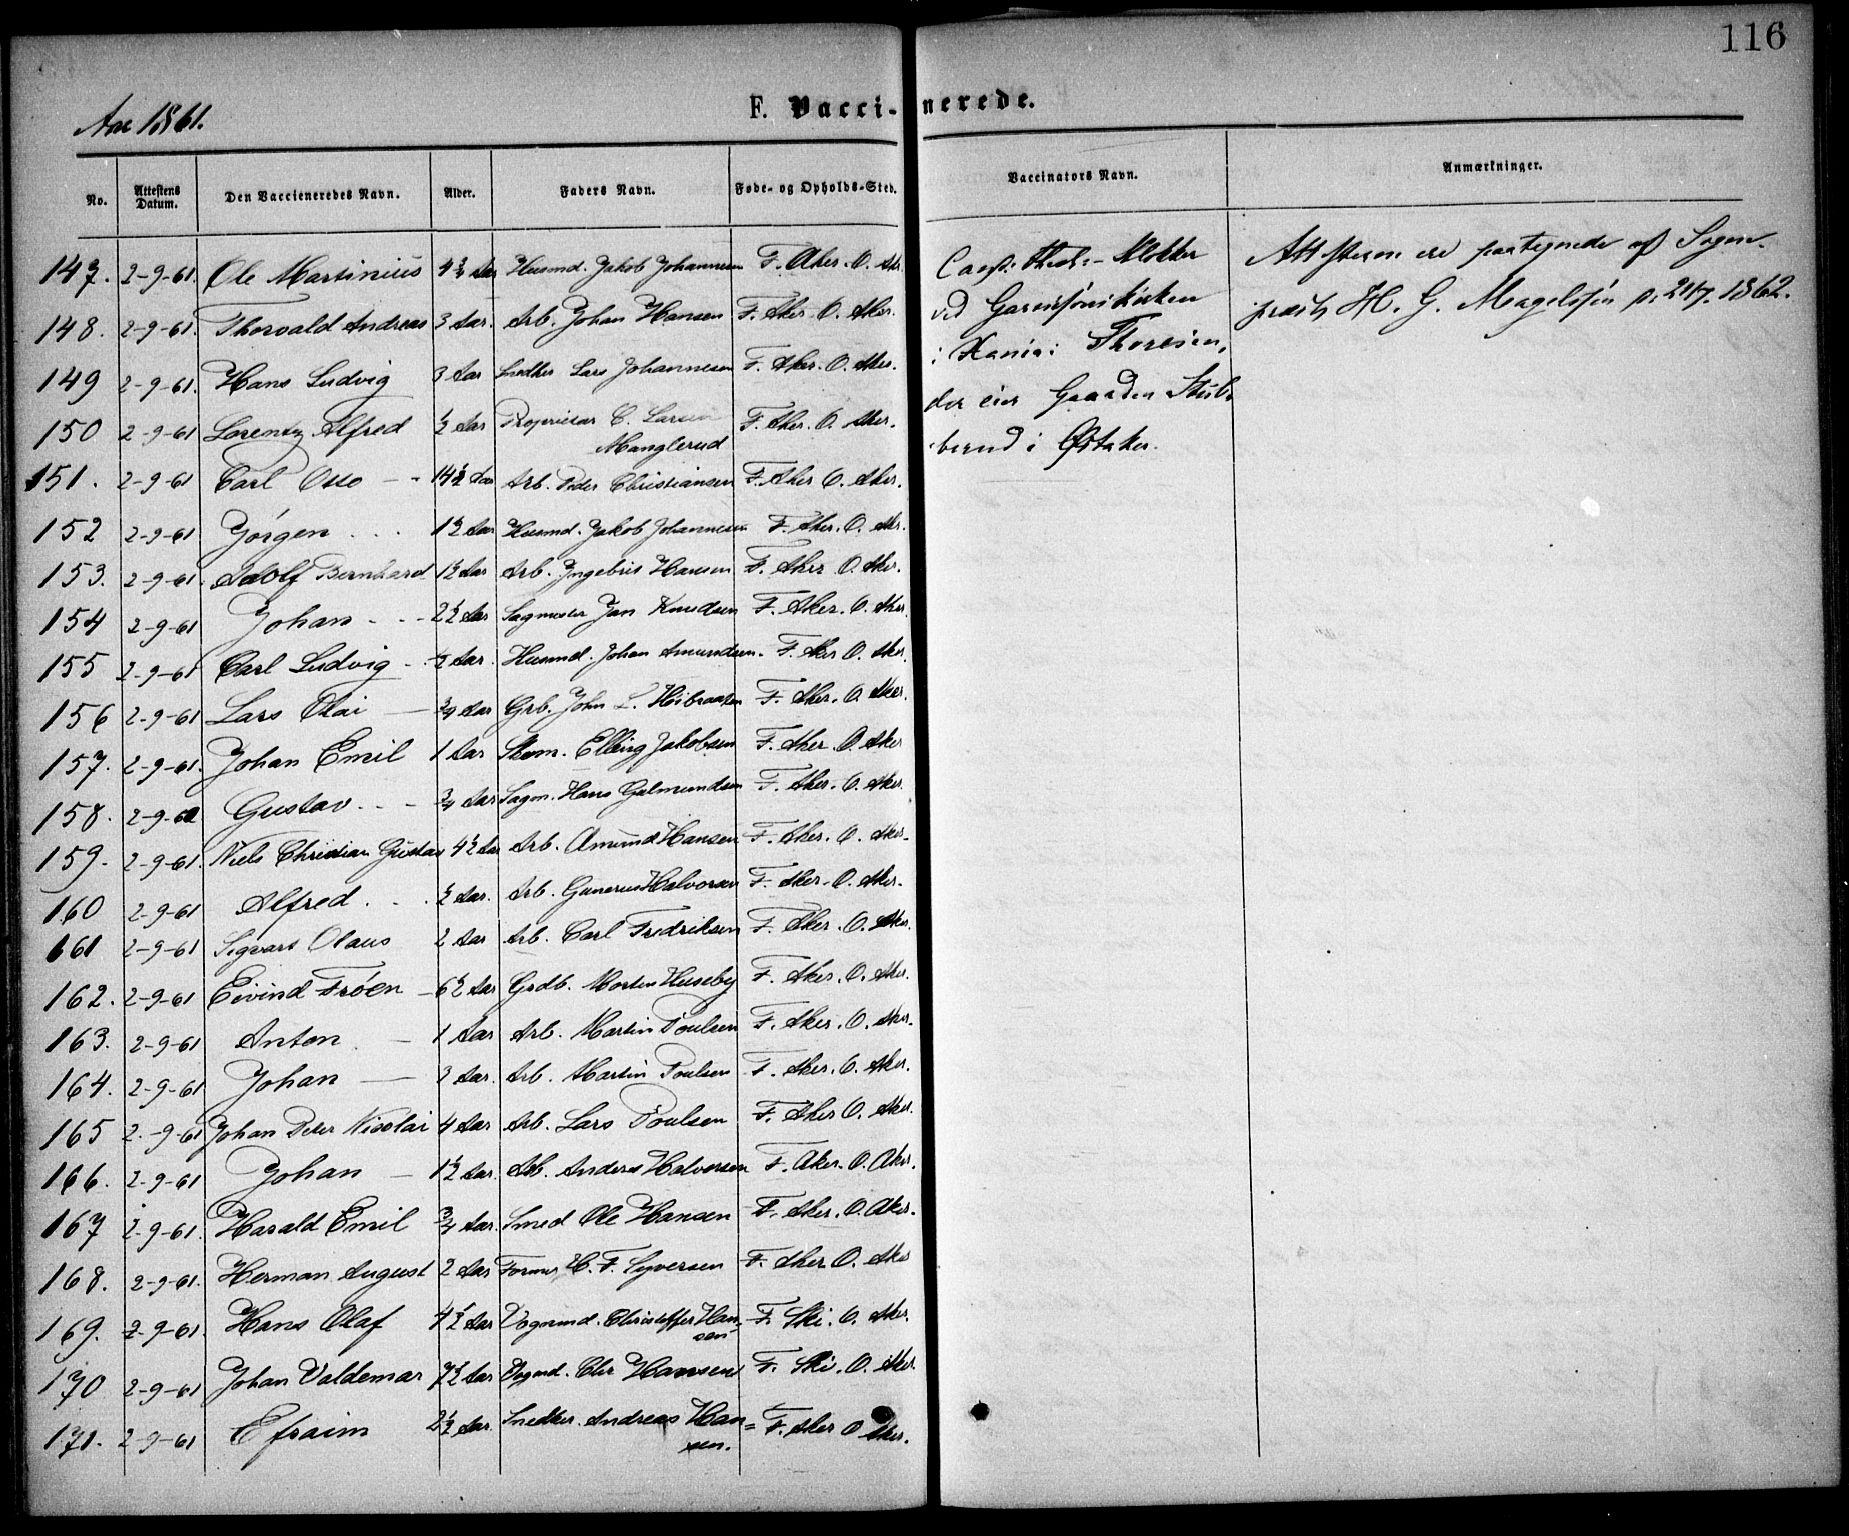 116
Aar 1861.
F. Vaccinerede.
No. Attestens Datum. Den Vaccieneredes Navn. Alder. Faders Navn. Føde- og Opholds-Sted. Vaccinators Navn. Anmærkninger.
147. 2-9-61. Ole Martinius Aar Husmd. Jakob Johannesen F. Aker. O. Aker
148. 2-9-61. Thorvald Andreas 3 Aar. Arb. Johan Hansen F. Aker. O. Aker.
149 2-9-61. Hans Ludvig 3 Aar Snedker Lars Johannesen F. Aker. O. Aker.
150 2-9-61 Lorentz Alfred ½ Aar Proprietær C. Larsen F. Aker. O. Aker.
Manglerud
151. 2-9-61 Carl Otto - - 14½ Aar Arb. Peder Christiansen F. Aker O. Aker.
152 2-9-61 Jørgen . . . 1½ Aar Husmd. Jakob Johannesen F. Aker. O. Aker.
153. 2-9-61. Adolf Bernhard 1½ Aar Arb. Yngebrit Hansen F. Aker O. Aker.
154 2-9-61 Johan - - - 2½ Aar Sagmester Jan Knudsen F. Aker. O. Aker.
155 2-9-61 Carl Ludvig - ½ Aar. Husmd. Johan Amundsen. F. Aker O. Aker.
156 2-9-61 Lars Olai — ¾ Aar Grb. John L. Høibraaten F. Aker. O. Aker.
157. 2-9-61. Johan Emil 1 Aar Skom. Elling Jakobsen F. Aker. O. Aker
158. 2-9-61 Gustav . . - ¾ Aar Sagm. Hans Gulmundsen F. Aker. O. Aker.
159. 2-9-61. Niels Christian Gustav 4½ Aar Arb. Amund Hansen F. Aker. O. Aker.
160 2-9-61 Alfred . . . ½ Aar. Arb. Gunerus Halvorsen F. Aker. O. Aker.
161 2-9-61 Sigvart Olaus 2 Aar Arb. Carl Fredriksen F. Aker. O. Aker.
162. 2-9-61 Eivind Frøen - 6½ Aar Grdb. Morten Huseby F. Aker. O. Aker.
163. 2-9-61 Anton - 1 Aar Arb. Martin Poulsen F. Aker. O. Aker.
164. 2-9-61 Johan — 3 Aar. Arb. Martin Poulsen F. Aker. O. Aker.
165 2-9-61 Johan Peter Nicolai 4 Aar Arb. Lars Poulsen F. Aker O. Aker.
166. 2-9-61 Johan - 1½ Aar. Arb. Anders Halvorsen F. Aker. O. Aker.
167 2-9-61. Harald Emil ¾ Aar. Smed Ole Hansen F. Aker. O. Aker.
168. 2-9-61. Herman August 2 Aar Former H. F. Syversen F. Aker O. Aker
169. 2-9-61. Hans Olaf 4½ Aar Vognmd. Christoffer Han- F. Ski. O. Aker.
sen
170 2-9-61 Johan Valdemar 7½ Aar Vogmd. Chr Hansen F. Ski. O. Aker
171. 2-9-61 Efraim 2½ Aar. Snedker. Andreas Han= F. Aker O Aker.
sen.
Klokker
ved Garnisonskirken
i Xania: Thoresen,
der eier Gaarden Stub-
berud i Østaker.
Attesterne ere paategnede af Sogne-
præst H. G. Magelssen 1862.